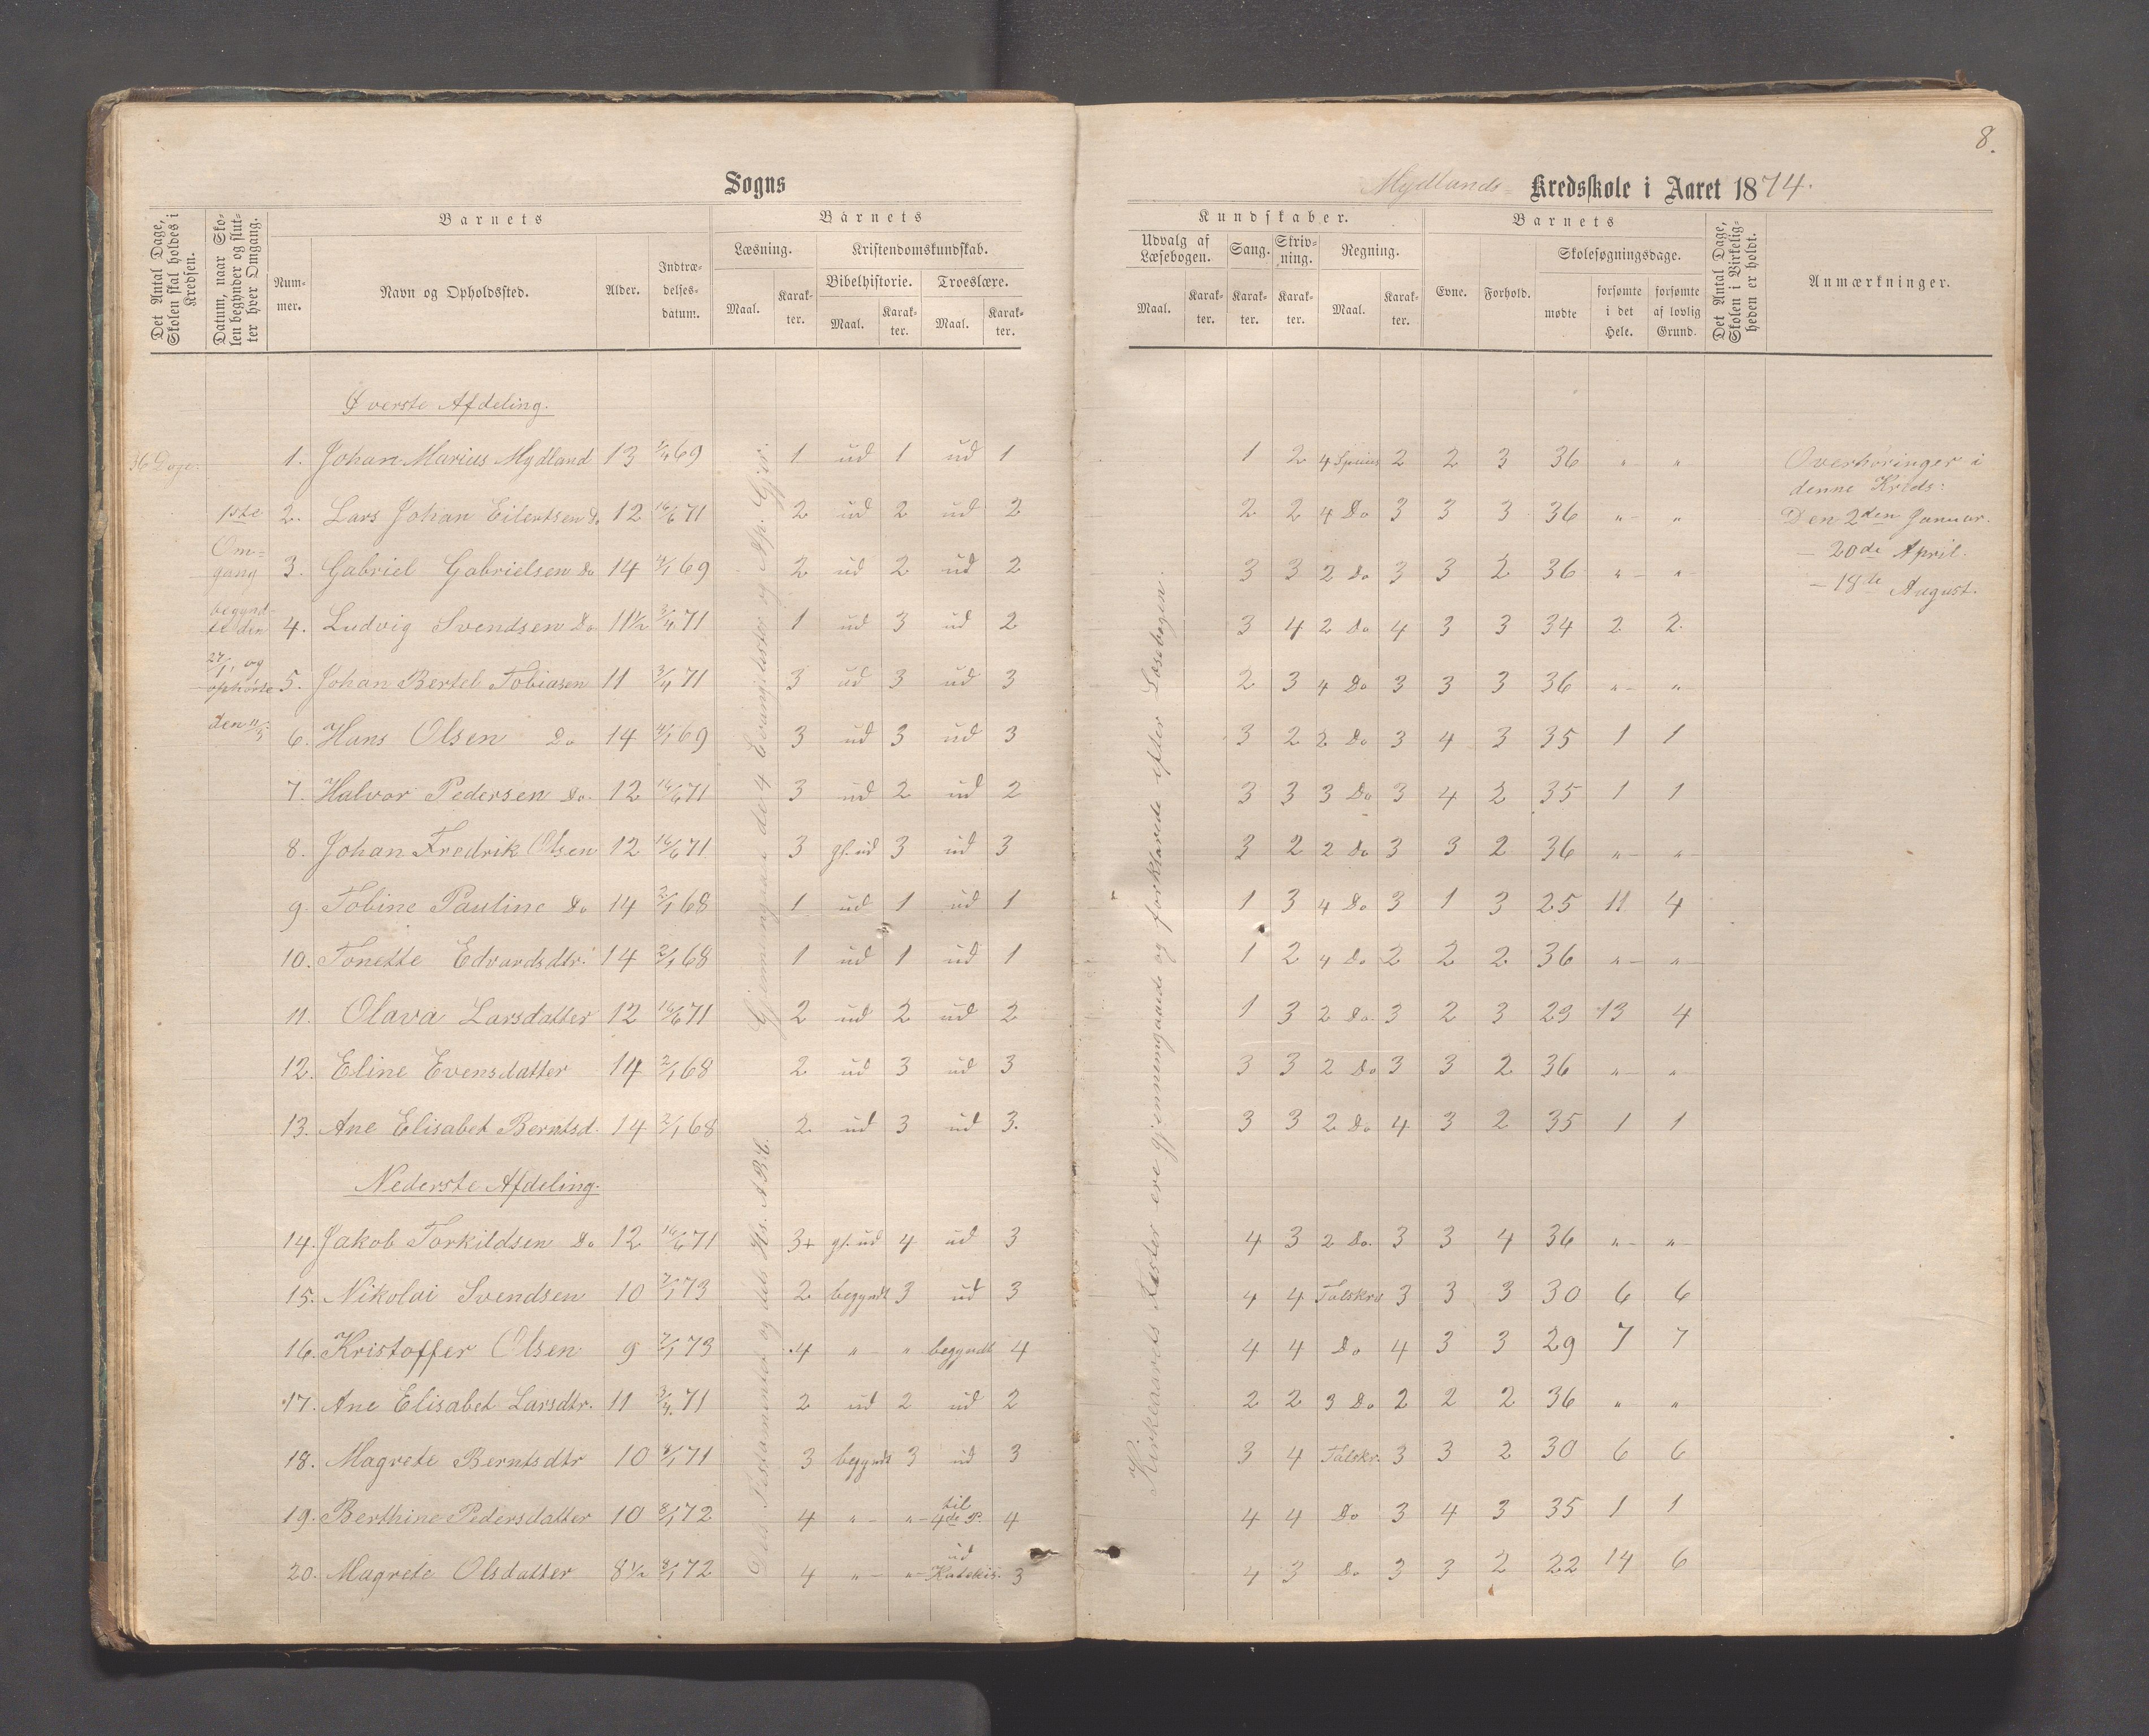 8.
Sogns
Mydlands- Kredsskole i Aaret 1874.
Det Antal Dage, Skolen skal holdes i Kredsen.
Datum, naar Skolen begynder og slutter hver Omgang.
Barnets
Nummer.
Navn og Opholdssted.
Alder.
Indtrædelsesdatum.
Barnets
Læsning.
Maal.
Karakter.
Kristendomskundskab.
Bibelhistorie.
Maal.
Karakter.
Troeslære.
Maal.
Karakter.
Kundskaber.
Udvalg af Læsebogen.
Maal.
Karakter.
Sang.
Karakter.
Skrivning.
Karakter.
Regning.
Maal.
Karakter.
Barnets
Evne.
Forhold.
Skolesøgningsdage.
mødte
forsømte i det Hele.
forsømte af lovlig Grund.
Det Antal Dage, Skolen i Virkeligheden er holdt.
Anmærkninger.
Øverste Afdeling.
36 Dage:
1ste
Om-
gang
begynd-
te den
27/1, og
ophørte
den 11/3
1. Johan Marius Mydland 13 1/4 69 1 ud 1 ud 1 1 2 4 Species 2 2 3 36 " "
2. Lars Johan Eilertsen Do 12 16/6 71 2 ud 2 ud 2 2 2 4 Do 3 3 3 36 " "
3. Gabriel Gabrielsen Do 14 4/1 69 2 ud 2 ud 2 3 3 2 Do 3 3 2 36 " "
4. Ludvig Svendsen Do 11½ 3/4 71 1 ud 3 ud 2 3 4 2 Do 4 3 3 34 2 2
5. Johan Bertel Tobiasen 11 3/4 71 3 ud 3 ud 3 2 3 4 Do 3 3 3 36 " "
6. Hans Olsen Do 14 4/1 69 3 ud 3 ud 3 3 2 2 Do 3 4 3 35 1 1
7. Halvor Pedersen Do. 12 16/6 71 3 ud 2 ud 2 3 3 3 Do 3 4 2 35 1 1
8. Johan Fredrik Olsen 12 16/6 71 3 gl. ud 3 ud 3 3 2 2 Do 3 3 2 36 " "
9. Tobine Pauline Do 14 2/1 68 1 ud 1 ud 1 1 3 4 Do 3 1 3 25 11 4
10. Tonette Edvardsdtr. 14 2/1 68 1 ud 1 ud 1 1 2 4 Do 2 2 2 36 " "
11. Olava Larsdatter 12 16/6 71 2 ud 2 ud 2 1 3 2 Do. 3 2 3 23 13 4
12. Eline Evensdatter 14 2/1 68 2 ud 3 ud 3 3 3 2 Do 3 3 2 36 " "
13. Ane Elisabet Berntsd. 14 2/1 68 2 ud 3 ud 3. 3 3 2 Do 4 3 2 35 1 1
Nederste Afdeling.
14. Jakob Torkildsen Do 12 16/6 71 3+ gl. ud 4 ud 3 4 3 2 Do. 3 3 4 36 " "
15. Nikolai Svendsen 10 7/1 73 2 begyndt 3 ud 3 4 4 Talskr. 3 3 3 30 6 6
16. Kristoffer Olsen 9 7/1 73 4 " " begyndt 4 4 4 Do 4 3 3 29 7 7
17. Ane Elisabet Larsdtr. 11 3/4 71 2 ud 2 ud 2 2 2 3 Do 2 2 2 36 " "
18. Magrete Berntsdtr 10 4/1 71 3 begyndt 3 ud 3 3 4 Talskr. 3 3 2 30 6 6
19. Berthine Pedersdatter 10 8/1 72 4 " " til 4de P. 4 4 4 Do 3 4 3 35 1 1
20. Magrete Olsdatter 8½ 8/1 72 4 " " ud Katekis. 3 4 3 Do 3 3 2 22 14 6
Gjennemgaaet de 4 Evangelister og Ap. Gjer.
Det Testamenter og dels Hs. ABC.
Kirkeaarets Fester ere gjennemgaaede og forklarede efter Læsebogen.
Overhøringer i
denne Kreds:
Den 2den Januar.
— 20de April.
— 18de August.